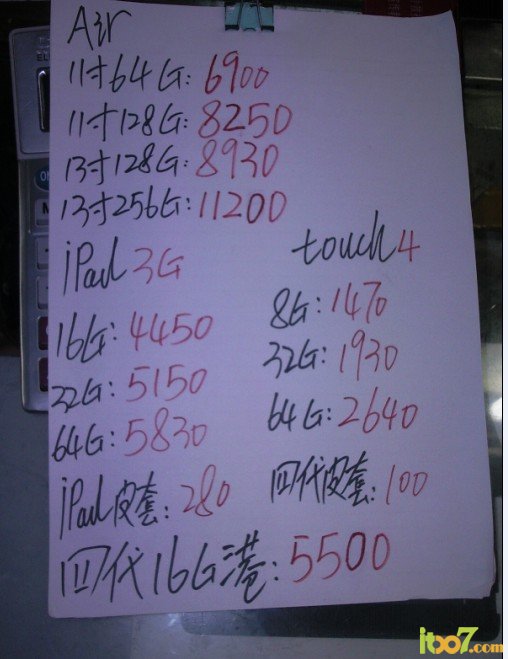 Air
11寸64G:6900
11寸128G:8250
13寸128G:8930
13寸256G:11200
iPad 3G
16G:4450
32G:5150
64G:5830
iPad皮套:280
touch4
8G:1470
32G:1930
64G:2640
四代皮套:100
四代16G港:5500
it007.com